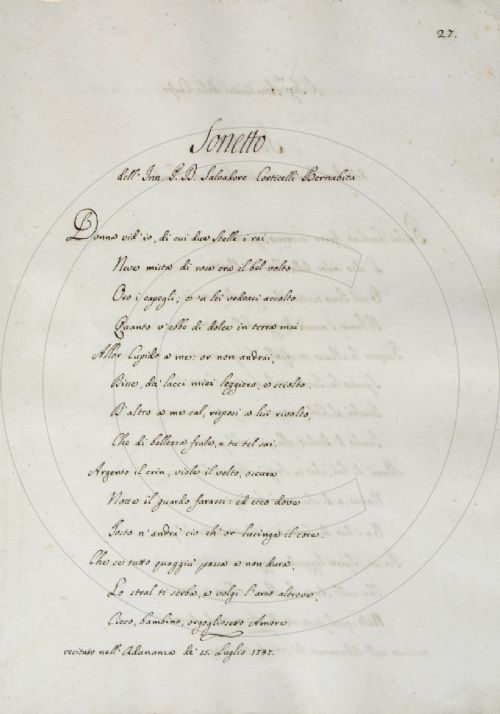 27.
Sonetto
dell' Inn P. D. Salvadore Corticelli Bernabita
Donna vid' io, di cui due Stelle i rai
Neve mista di rose era il bel volto
Oro i capegli; e in lei vedeasi accolto
Quanto v' ebbe di dolce in terra mai
Allor Cupido a me: or non andrai,
Disse, da' lacci miei leggiero, e sciolto
D' altro a me cal, risposi a lui rivolto,
Che di bellezza frale, e tu tel sai.
Argento il crin, viole il volto, oscura
Notte il guardo farassi: ed ecco dove
Tosto n' andrà ciò ch' or lusinga il core.
Che se tutto quaggiù passa e non dura,
Lo stral ti serba, e volgi l'arco altrove,
Cieco, bambino, orgogliosetto Amore.
recitato nell' Adunanza de' 15. Luglio 1747.